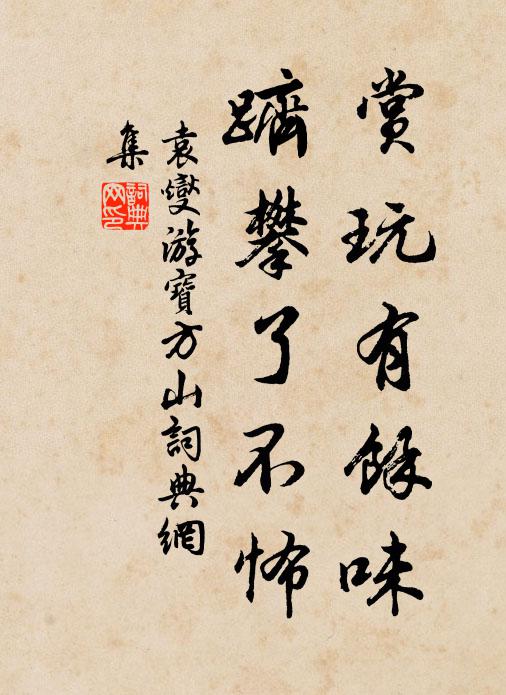 賞玩有餘味
躋攀了不怖
袁燮游寶方山詞典網
集
詞典
网印